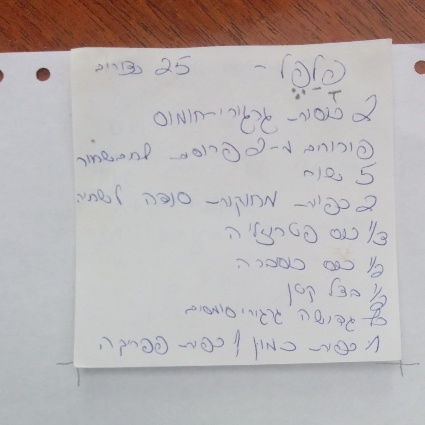 פלפל - 25 כדורים
2 כוסות גרגורי-חומוס
פירורים מ-2 פרוסות לחם שחור
5 שום
2 כפיות מחוקות סודה לשתיה
1/3 כוס פטרוזליה
1/2 כוס כוסברה
1/2 בצל קטן
גדושה גרגורי סומסום
1 כפית כמון 1 כפית פפריקה